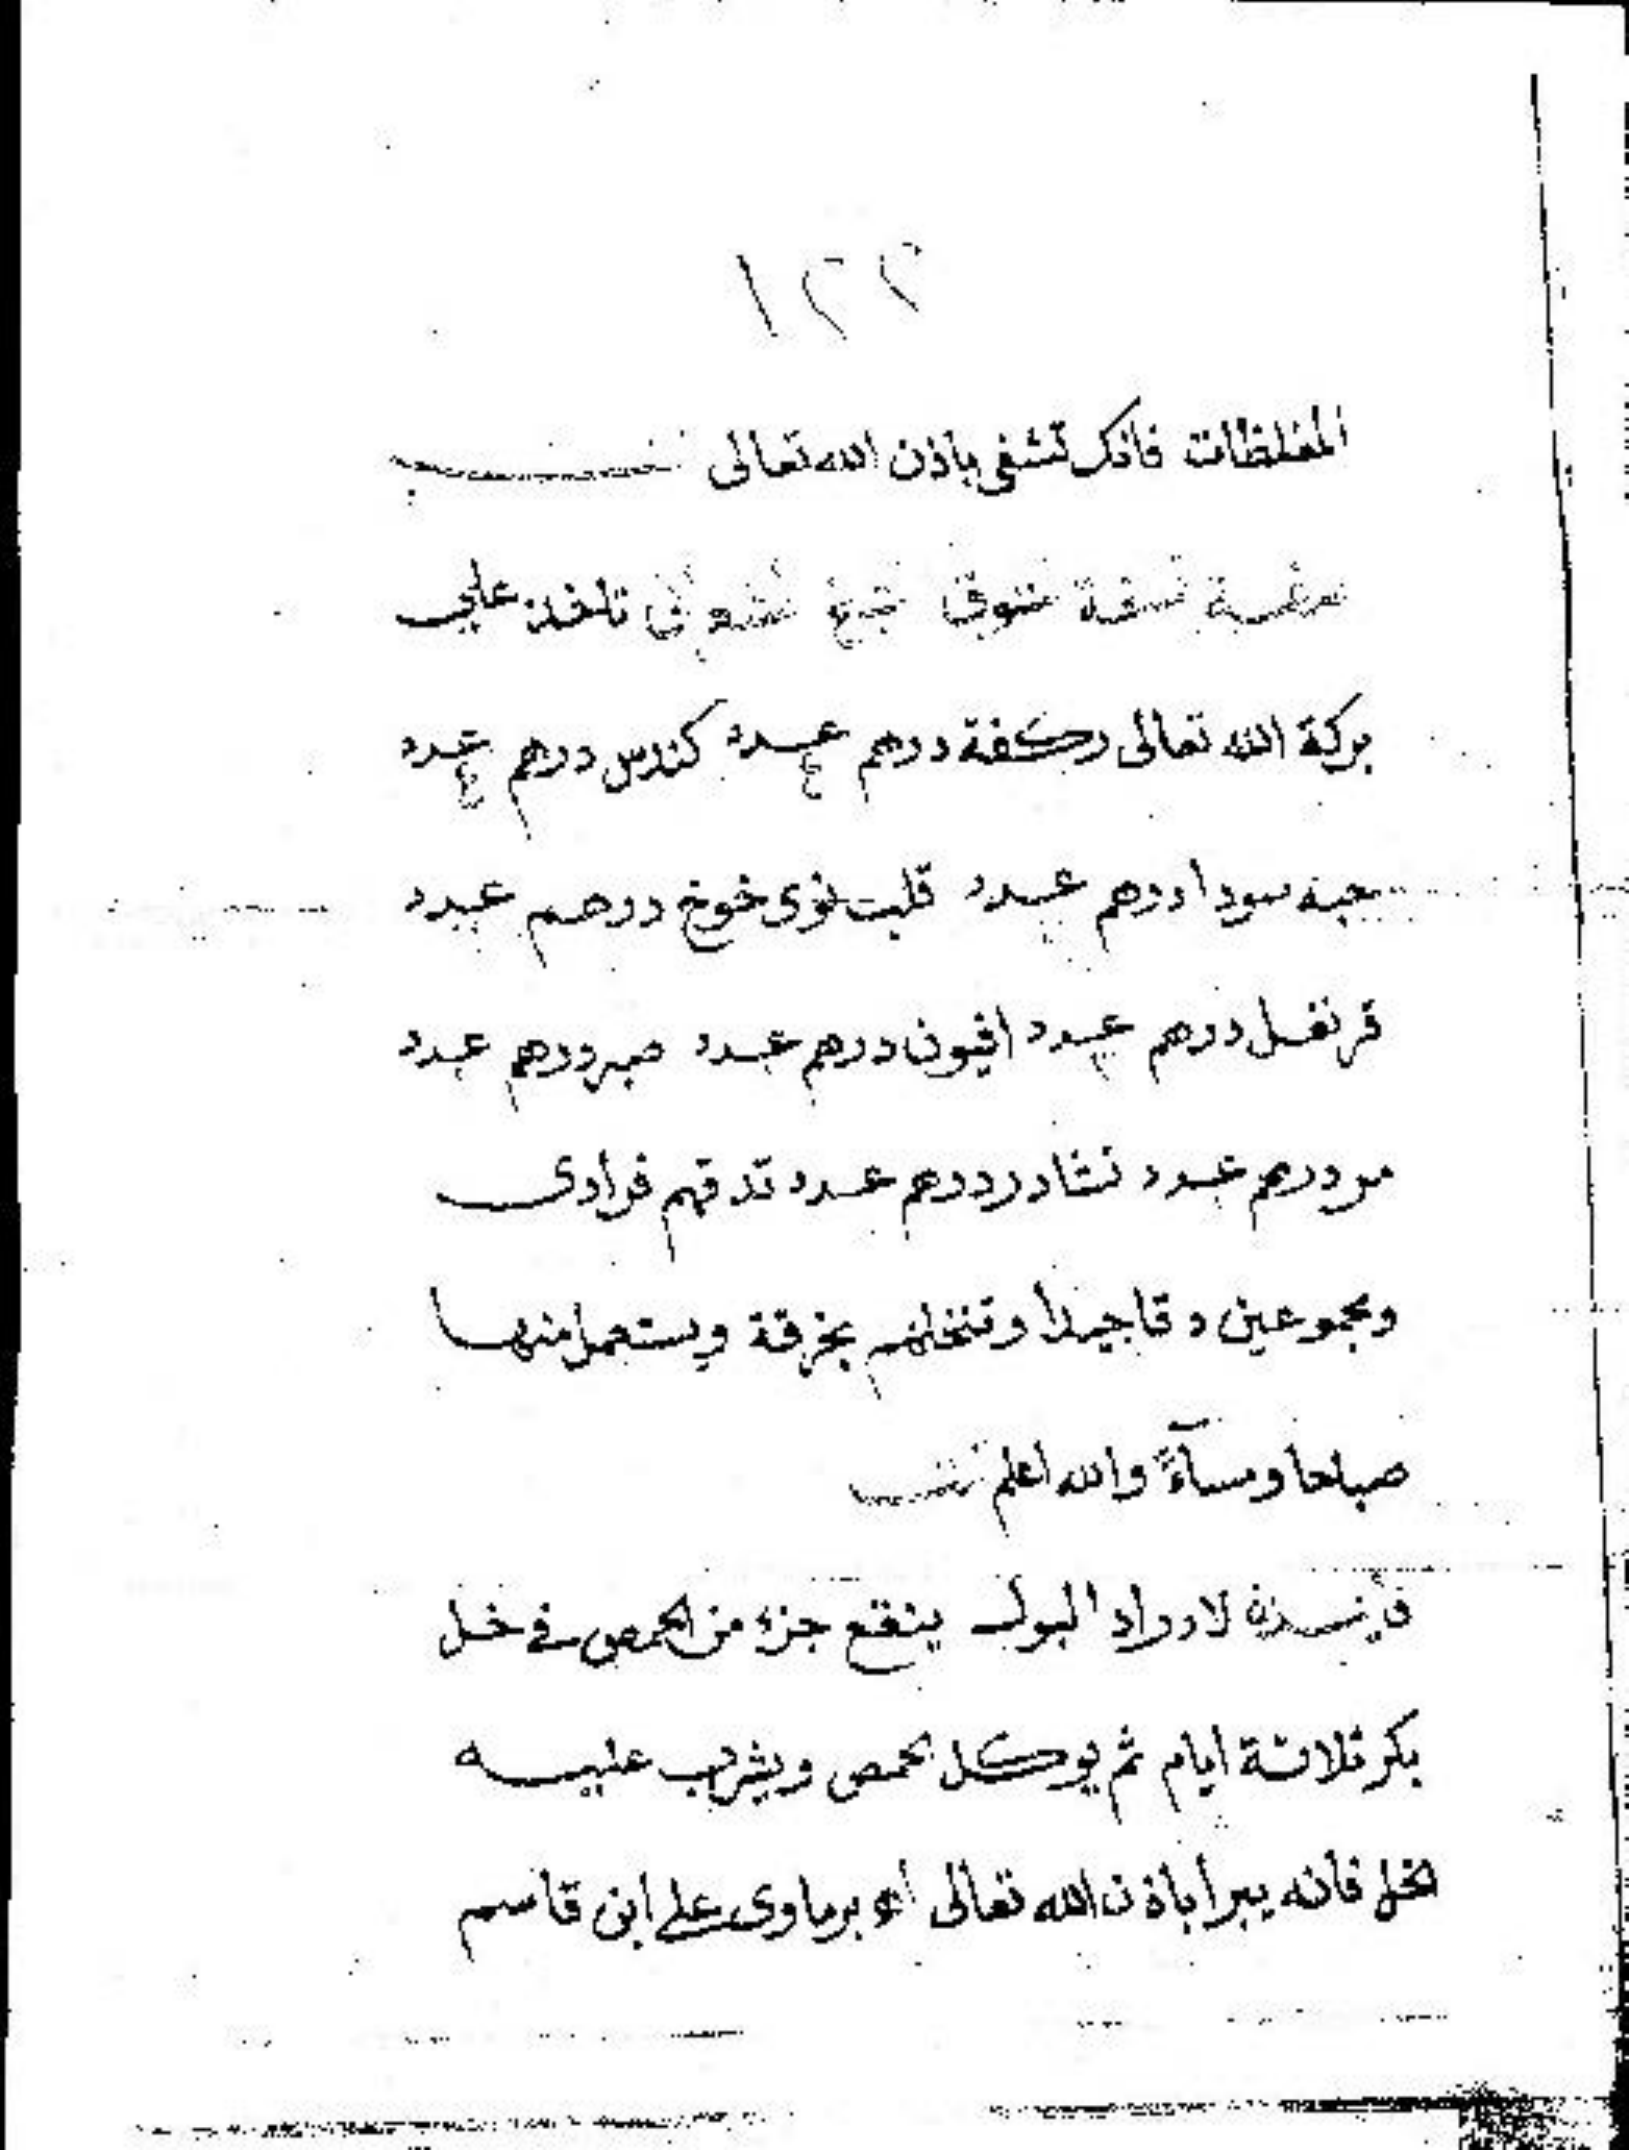 ١٢٢
المغلظات فانك تشفى باذن الله تعالى
تاخذ على
بركة الله تعالى ركفة درهم عدد ٤ كندس درهم عدد ٤
حبه سودا درهم عدد قلب نوى خوخ درهم عدد
قرنفل درهم عدد افيون درهم عدد صبر درهم عدد
مر درهم عدد نشادر درهم عدد تدقهم فرادى
ومجموعين دقا جيدا وتنخلهم بخرقة ويستعمل منها
صباحا ومساآءً والله اعلم
فايدة لادرار البول ينقع جزء من الحمص في خل
بكر ثلاثة ايام ثم يوكل الحمص ويشرب عليه
الخل فانه يبرأ باذن الله تعالى اهـ برماوى على ابن قاسم